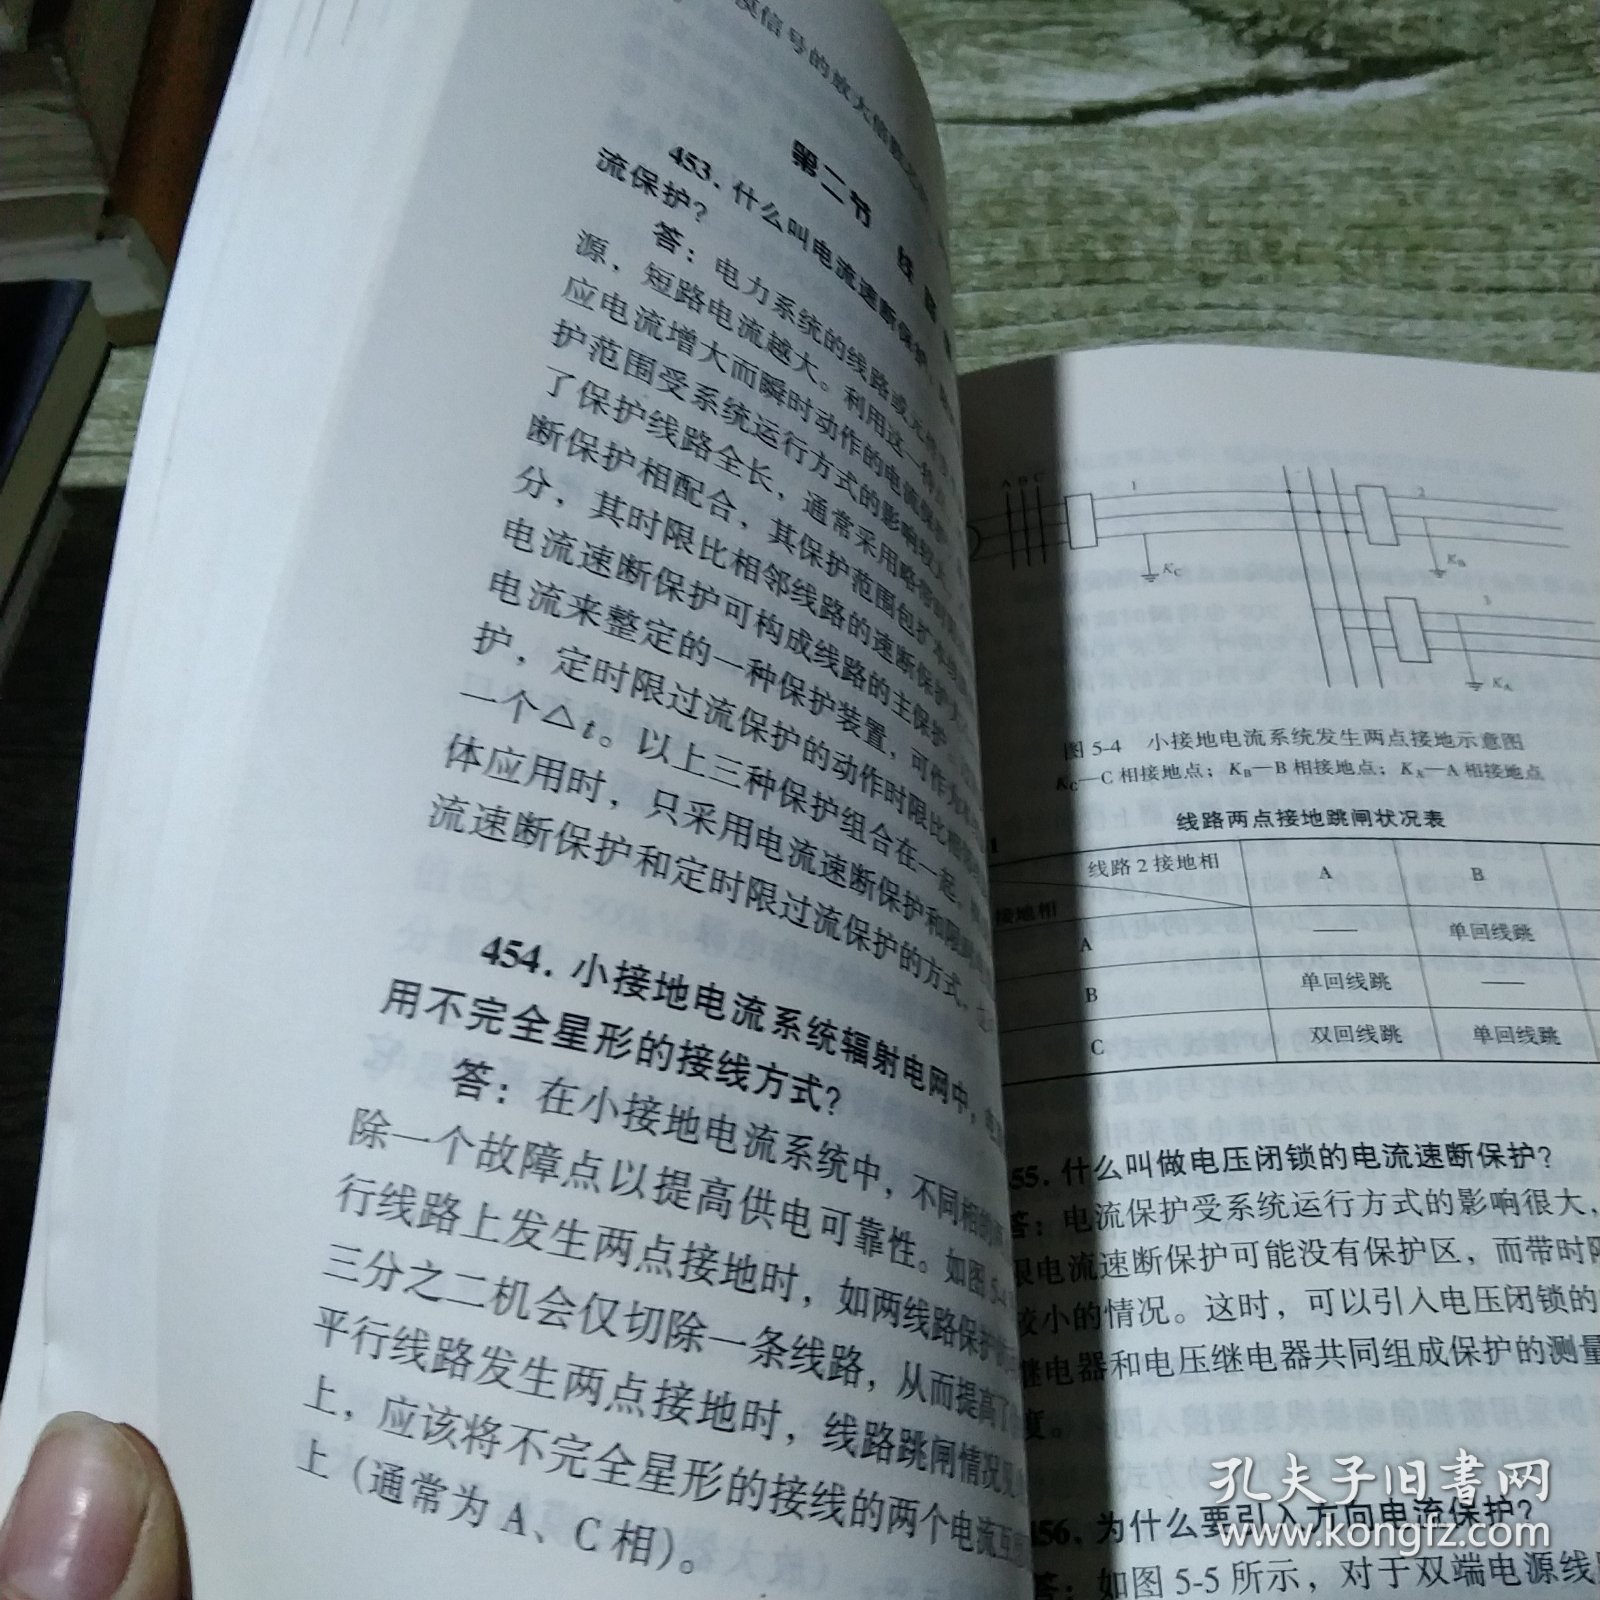 模信号的放大倍数
第二节 线路
453. 什么叫电流速断保护
流保护?
答: 电力系统的线路或元件
源, 短路电流越大。利用这一特点
应电流增大而瞬时动作的电流保护
护范围受系统运行方式的影响较大
了保护线路全长, 通常采用略带时限
断保护相配合, 其保护范围包括本线
分, 其时限比相邻线路的速断保护大
电流速断保护可构成线路的主保护
电流来整定的一种保护装置, 可作为本
护, 定时限过流保护的动作时限比相邻
一个△t。以上三种保护组合在一起,
体应用时, 只采用电流速断保护和限时
流速断保护和定时限过流保护的方式,
454. 小接地电流系统辐射电网中,
用不完全星形的接线方式?
答: 在小接地电流系统中, 不同相的
除一个故障点以提高供电可靠性。如图 5-4
行线路上发生两点接地时, 如两线路保护
三分之二机会仅切除一条线路, 从而提高了
平行线路发生两点接地时, 线路跳闸情况见
上, 应该将不完全星形的接线的两个电流互
上 (通常为 A、C 相)。
A B C
1
2
3
KC
KB
KA
图 5-4 小接地电流系统发生两点接地示意图
KC—C 相接地点; KB—B 相接地点; KA—A 相接地点
线路两点接地跳闸状况表
线路 2 接地相 A B
接地相
A —— 单回线跳
B 单回线跳 ——
C 双回线跳 单回线跳
55. 什么叫做电压闭锁的电流速断保护?
答: 电流保护受系统运行方式的影响很大,
限电流速断保护可能没有保护区, 而带时限
较小的情况。这时, 可以引入电压闭锁的
继电器和电压继电器共同组成保护的测量
度。
456. 为什么要引入方向电流保护?
答: 如图 5-5 所示, 对于双端电源线
孔夫子旧書网
www.kongfz.com